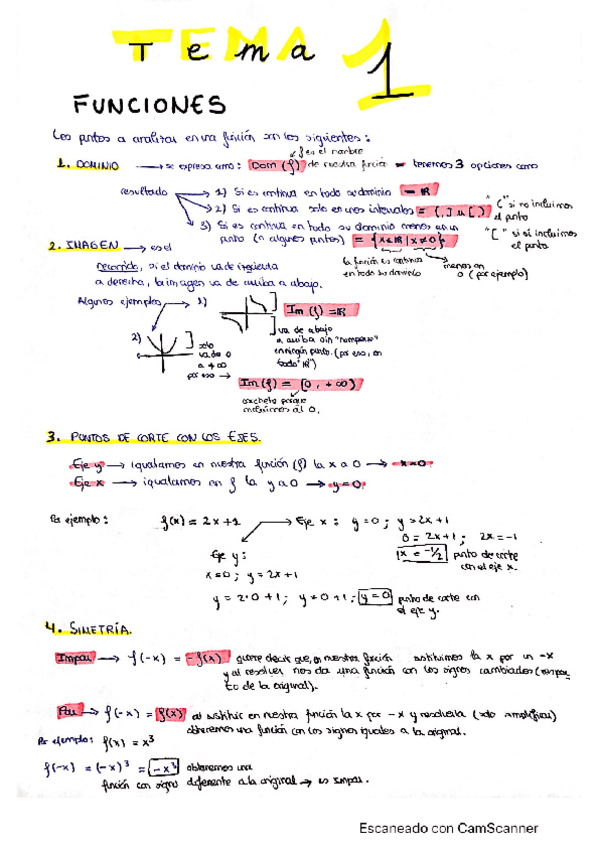 Tema 1
FUNCIONES
Los puntos a analizar en una función son los siguientes:
f es el nombre
1. DOMINIO → se expresa como: Dom (f) de nuestra función = tenemos 3 opciones como
resultado → 1) Si es continua en todo su dominio = ℝ
2) Si es continua solo en unos intervalos = ( , ] u [ )
"(" si no incluimos el punto
3) Si es continua en todo su dominio menos en un
punto (o algunos puntos) = {x∈ℝ | x≠0}
"[" si sí incluimos el punto
la función es continua en todo su dominio
menos en 0 (por ejemplo)
2. IMAGEN → es el
recorrido, si el dominio va de izquierda
a derecha, la imagen va de arriba a abajo.
Algunos ejemplos → 1)
Im (f) = ℝ
va de abajo
a arriba sin "romperse"
en ningún punto. (por eso, en
todo "ℝ")
2)
solo
va de 0
a +∞
por eso →
Im(f) = [0, +∞)
corchete porque
incluimos al 0.
3. PUNTOS DE CORTE CON LOS EJES.
Eje y → igualamos en nuestra función (f) la x a 0 → x=0.
Eje x → igualamos en f la y a 0 → y=0.
Por ejemplo: f(x) = 2x+1 → Eje x: y=0; y=2x+1
0 = 2x+1; 2x=-1
x = -1/2 punto de corte
con el eje x.
Eje y:
x=0; y=2x+1
y = 2·0+1; y=0+1; y=0 punto de corte con
el eje y.
4. SIMETRÍA.
Impar → f(-x) = -f(x) quiere decir que, en nuestra función sustituimos la x por un -x
y al resolver nos da una función con los signos cambiados (respec
to de la original).
Par → f(-x) = f(x) al sustituir en nuestra función la x por -x y resolverla (solo simplificar)
obtenemos una función con los signos iguales a la original.
Por ejemplo: f(x) = x³
f(-x) = (-x)³ = -x³ obtenemos una
función con signo diferente a la original → es impar.
Escaneado con CamScanner